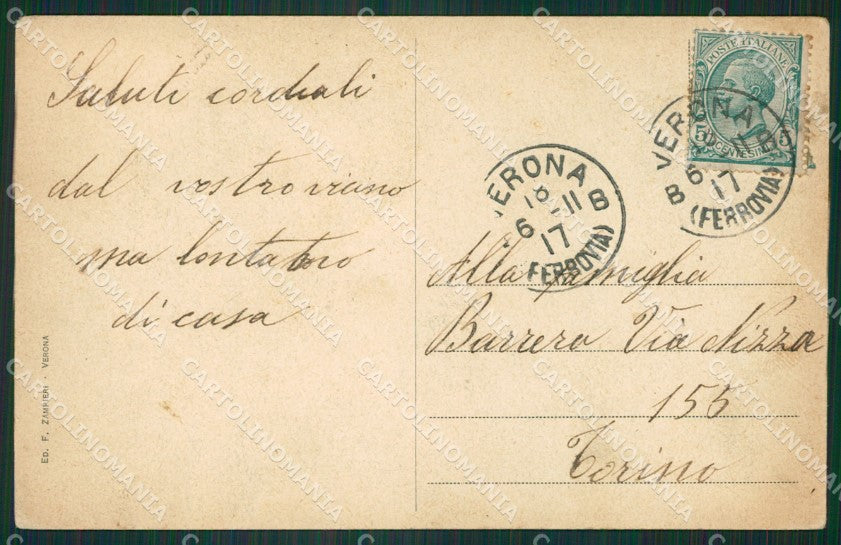 Saluti cordiali
dal vostro
ma lontano
di casa
ED. F. ZAMBIERI - VERONA
POSTE ITALIANE
5 CENTESIMI 5
VERONA B
6 II
17
B (FERROVIA)
VERONA
18
6 II B
17
(FERROVIA)
Alla famiglia
Barrera Via Nizza
155
Torino
CARTOLINOMANIA